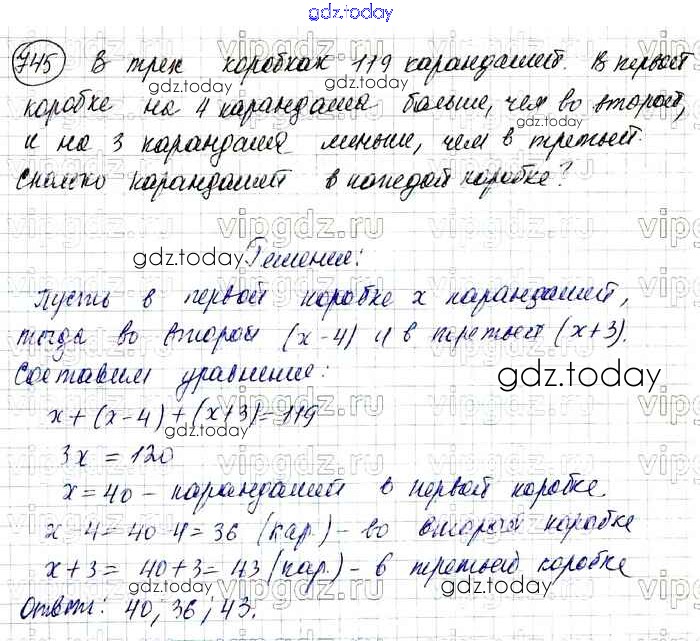 gdz.today
745 В трех коробках 119 карандашей. В первой
коробке на 4 карандаша больше, чем во второй,
и на 3 карандаша меньше, чем в третьей.
Сколько карандашей в каждой коробке?
Решение:
Пусть в первой коробке х карандашей,
тогда во второй (х-4) и в третьей (х+3).
Составим уравнение:
х+(х-4)+(х+3)=119
3х = 120
х=40 - карандашей в первой коробке.
х-4=40-4=36 (кар.) - во второй коробке
х+3= 40+3=43 (кар.) - в третьей коробке
Ответ: 40; 36; 43.
gdz.today
vipgdz.ru